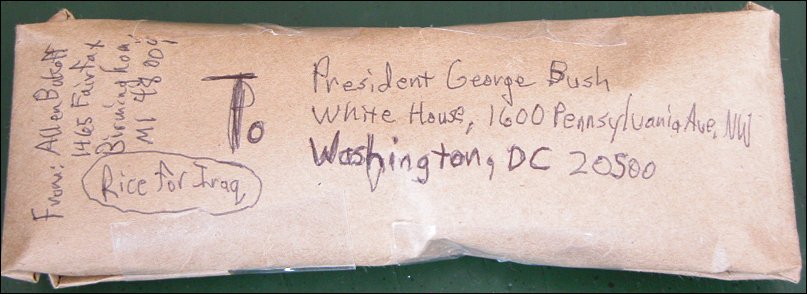 From: Allen
1465 Fairfax
Birmingham
MI 48009
Rice for Iraq
To
President George Bush
White House, 1600 Pennsylvania Ave, NW
Washington, DC 20500